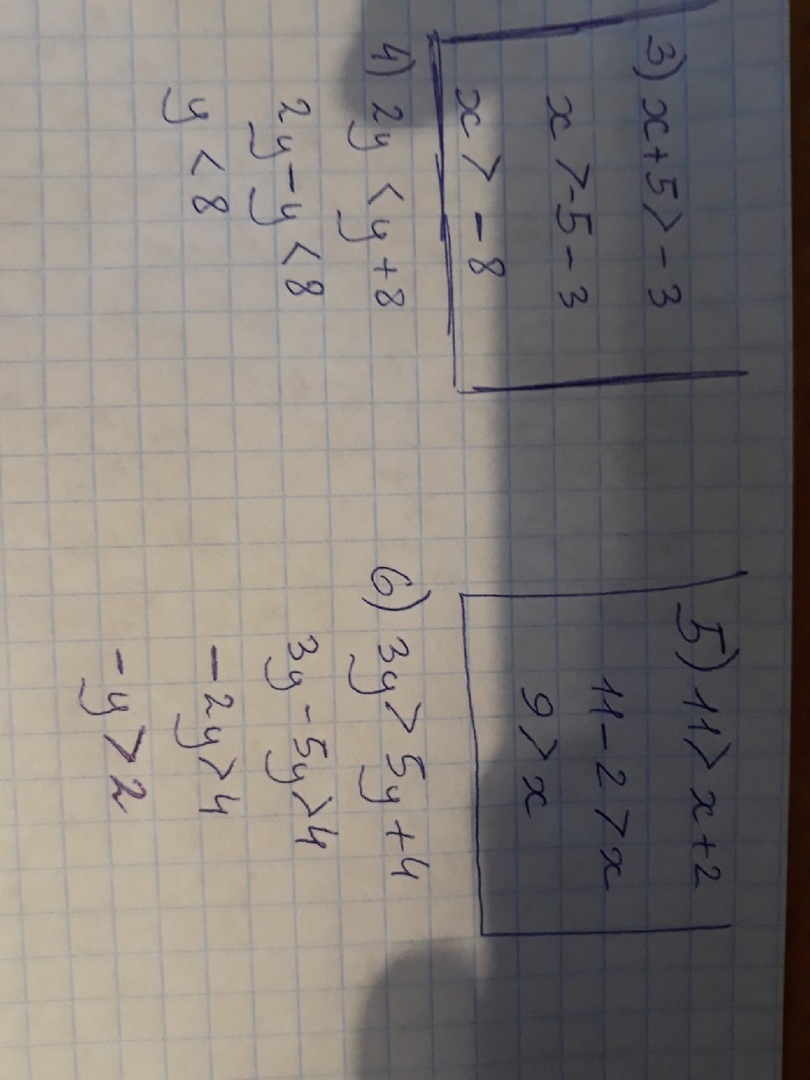 3) x+5>-3
x>-5-3
x>-8
4) 2y<y+8
2y-y<8
y<8
5) 11>x+2
11-2>x
9>x
6) 3y>5y+4
3y-5y>4
-2y>4
-y>2